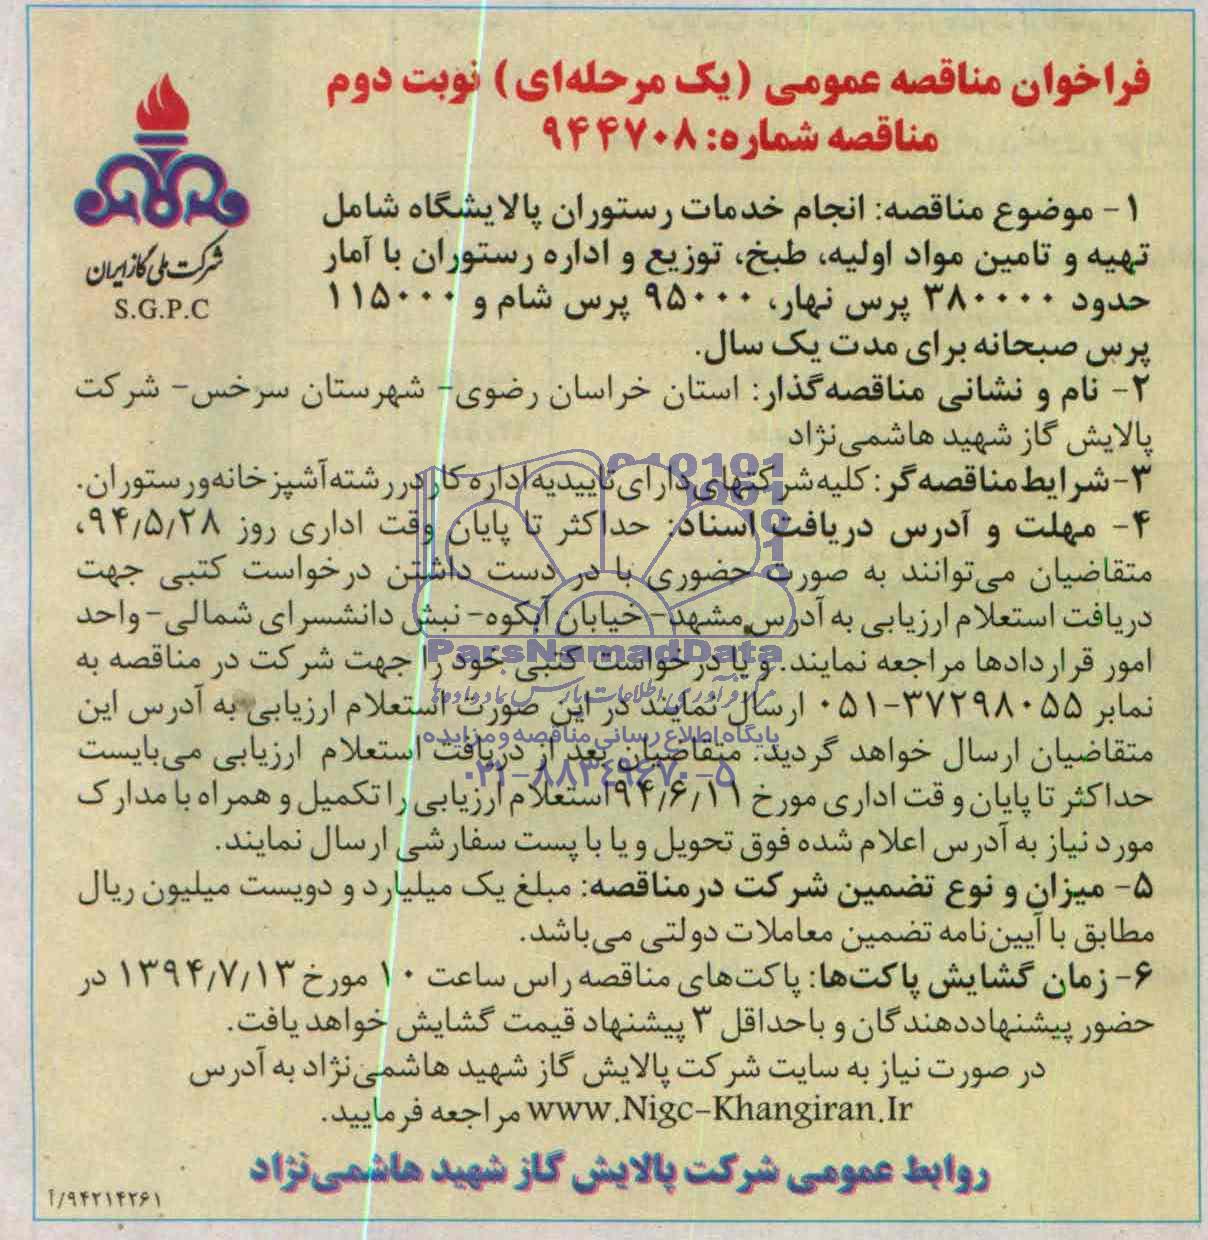 فراخوان مناقصه عمومی (یک مرحله‌ای) نوبت دوم
مناقصه شماره: ۹۴۴۷۰۸
شرکت ملی گاز ایران
S.G.P.C
۱- موضوع مناقصه: انجام خدمات رستوران پالایشگاه شامل
تهیه و تامین مواد اولیه، طبخ، توزیع و اداره رستوران با آمار
حدود ۳۸۰۰۰۰ پرس نهار، ۹۵۰۰۰ پرس شام و ۱۱۵۰۰۰
پرس صبحانه برای مدت یک سال.
۲- نام و نشانی مناقصه‌گذار: استان خراسان رضوی- شهرستان سرخس- شرکت
پالایش گاز شهید هاشمی‌نژاد
۳-شرایط مناقصه‌گر: کلیه شرکتهای دارای تاییدیه اداره کار در رشته آشپزخانه و رستوران.
۴- مهلت و آدرس دریافت اسناد: حداکثر تا پایان وقت اداری روز ۹۴/۵/۲۸،
متقاضیان می‌توانند به صورت حضوری با در دست داشتن درخواست کتبی جهت
دریافت استعلام ارزیابی به آدرس مشهد- خیابان آبکوه- نبش دانشسرای شمالی- واحد
امور قراردادها مراجعه نمایند. و یا درخواست کتبی خود را جهت شرکت در مناقصه به
نمابر ۳۷۲۹۸۰۵۵-۰۵۱ ارسال نمایند در این صورت استعلام ارزیابی به آدرس این
متقاضیان ارسال خواهد گردید. متقاضیان بعد از دریافت استعلام ارزیابی می‌بایست
حداکثر تا پایان وقت اداری مورخ ۹۴/۶/۱۱ استعلام ارزیابی را تکمیل و همراه با مدارک
مورد نیاز به آدرس اعلام شده فوق تحویل و یا با پست سفارشی ارسال نمایند.
۵- میزان و نوع تضمین شرکت در مناقصه: مبلغ یک میلیارد و دویست میلیون ریال
مطابق با آیین‌نامه تضمین معاملات دولتی می‌باشد.
۶- زمان گشایش پاکت‌ها: پاکت‌های مناقصه راس ساعت ۱۰ مورخ ۱۳۹۴/۷/۱۳ در
حضور پیشنهاددهندگان و باحداقل ۳ پیشنهاد قیمت گشایش خواهد یافت.
در صورت نیاز به سایت شرکت پالایش گاز شهید هاشمی‌نژاد به آدرس
www.Nigc-Khangiran.Ir مراجعه فرمایید.
روابط عمومی شرکت پالایش گاز شهید هاشمی‌نژاد
۹۴۲۱۴۲۶۱/آ
ParsNamadData
مرکز فرآوری اطلاعات پارس نماد داده‌ها
پایگاه اطلاع رسانی مناقصه و مزایده
۰۲۱-۸۸۳۴۹۶۷۰-۵